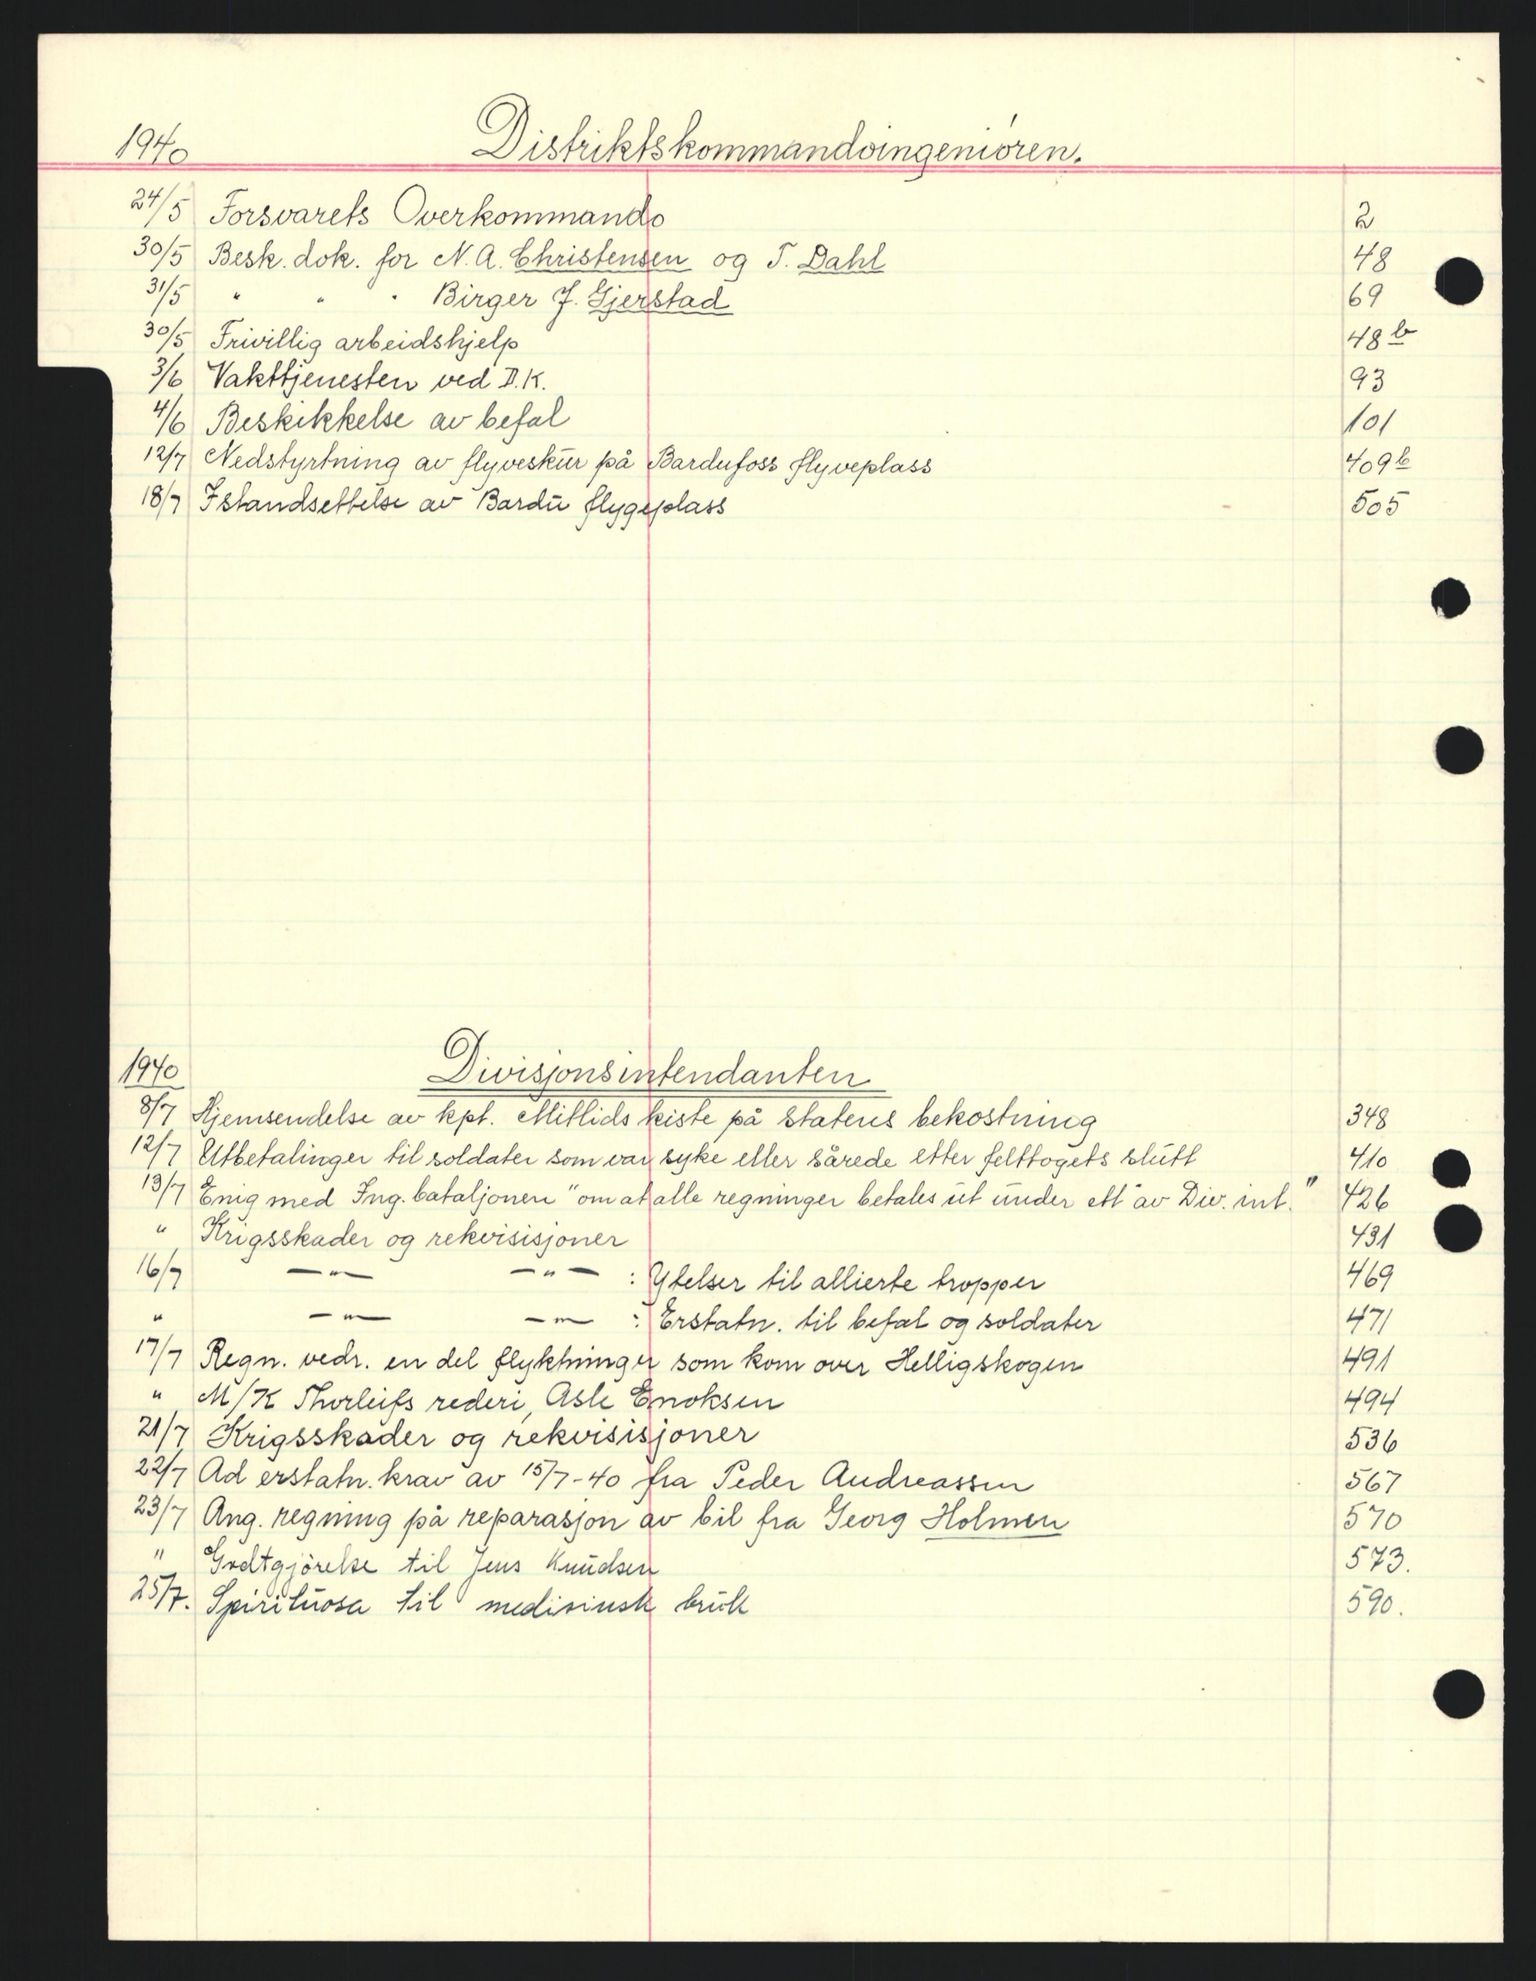 1940 Distriktskommandoingeniören.
24/5 Forsvarets Overkommando 2
30/5 Besk. dok. for N. A. Christensen og T. Dahl 48
31/5 " " " Birger J. Gjerstad 69
30/5 Frivillig arbeidshjelp 48 b
3/6 Vakttjenesten ved D.K. 93
4/6 Beskikkelse av befal 101
12/7 Nedstyrtning av flyveskur på Bardufoss flyveplass 409 b
18/7 Istandsettelse av Bardu flygeplass 505
1940 Divisjonsintendanten
8/7 Hjemsendelse av kpt. Mitlids kiste på statens bekostning 348
12/7 Utbetalinger til soldater som var syke eller sårede etter felttogets slutt 410
13/7 Enig med Ing. bataljonen "om at alle regninger betales ut under ett av Div. int." 426
" Krigsskader og rekvisisjoner 431
16/7 —"— —"— : Ytelser til allierte tropper 469
" —"— —"— : Erstatn. til befal og soldater 471
17/7 Regn. vedr. en del flyktninger som kom over Helligskogen 491
" M/K Thorleifs rederi, Asle Enoksen 494
21/7 Krigsskader og rekvisisjoner 536
22/7 Ad erstatn. krav av 15/7-40 fra Peder Andreassen 567
23/7 Ang. regning på reparasjon av bil fra Georg Holmen 570
" Godtgjörelse til Jens Knudsen 573.
25/7. Spirituosa til medisinsk bruk 590.